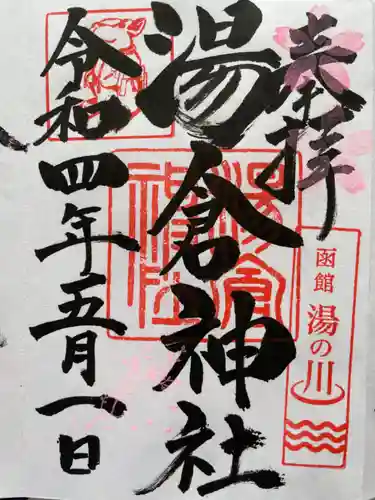 奉拝
湯倉神社
令和四年五月一日
湯倉神社
函館 湯の川